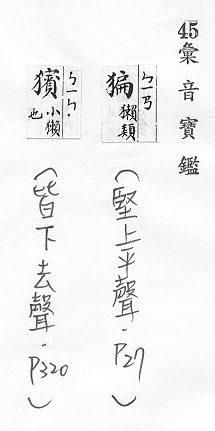 45彙音寶鑑
猵 ㄅㄧㄢ 獺類
(堅上平聲.P27)
獱 ㄅㄧㄣ. 小獺也
(皆下去聲.P320)